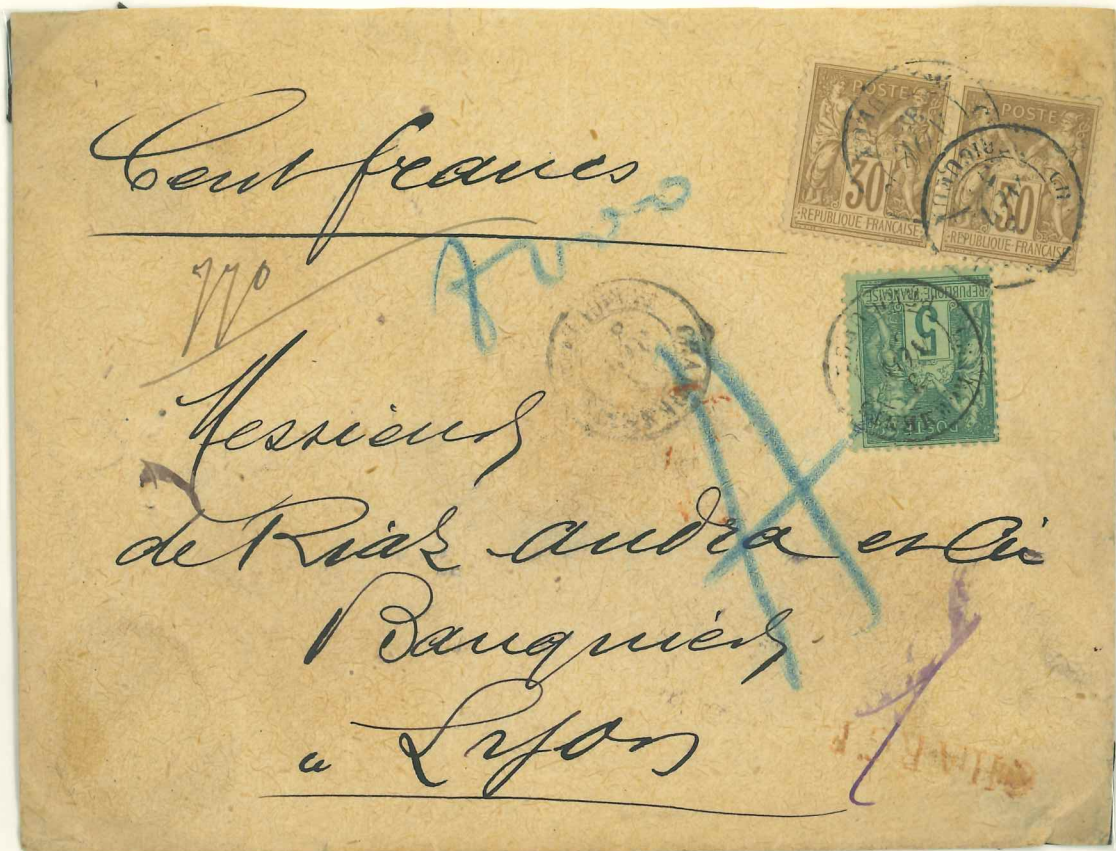 Cent francs
POSTE
30
REPUBLIQUE FRANÇAISE
POSTE
30
REPUBLIQUE FRANÇAISE
5
POSTE
REPUBLIQUE FRANÇAISE
770
Messieurs
de Riaz Audra et Cie
Banquiers
a Lyon
CHARGÉ